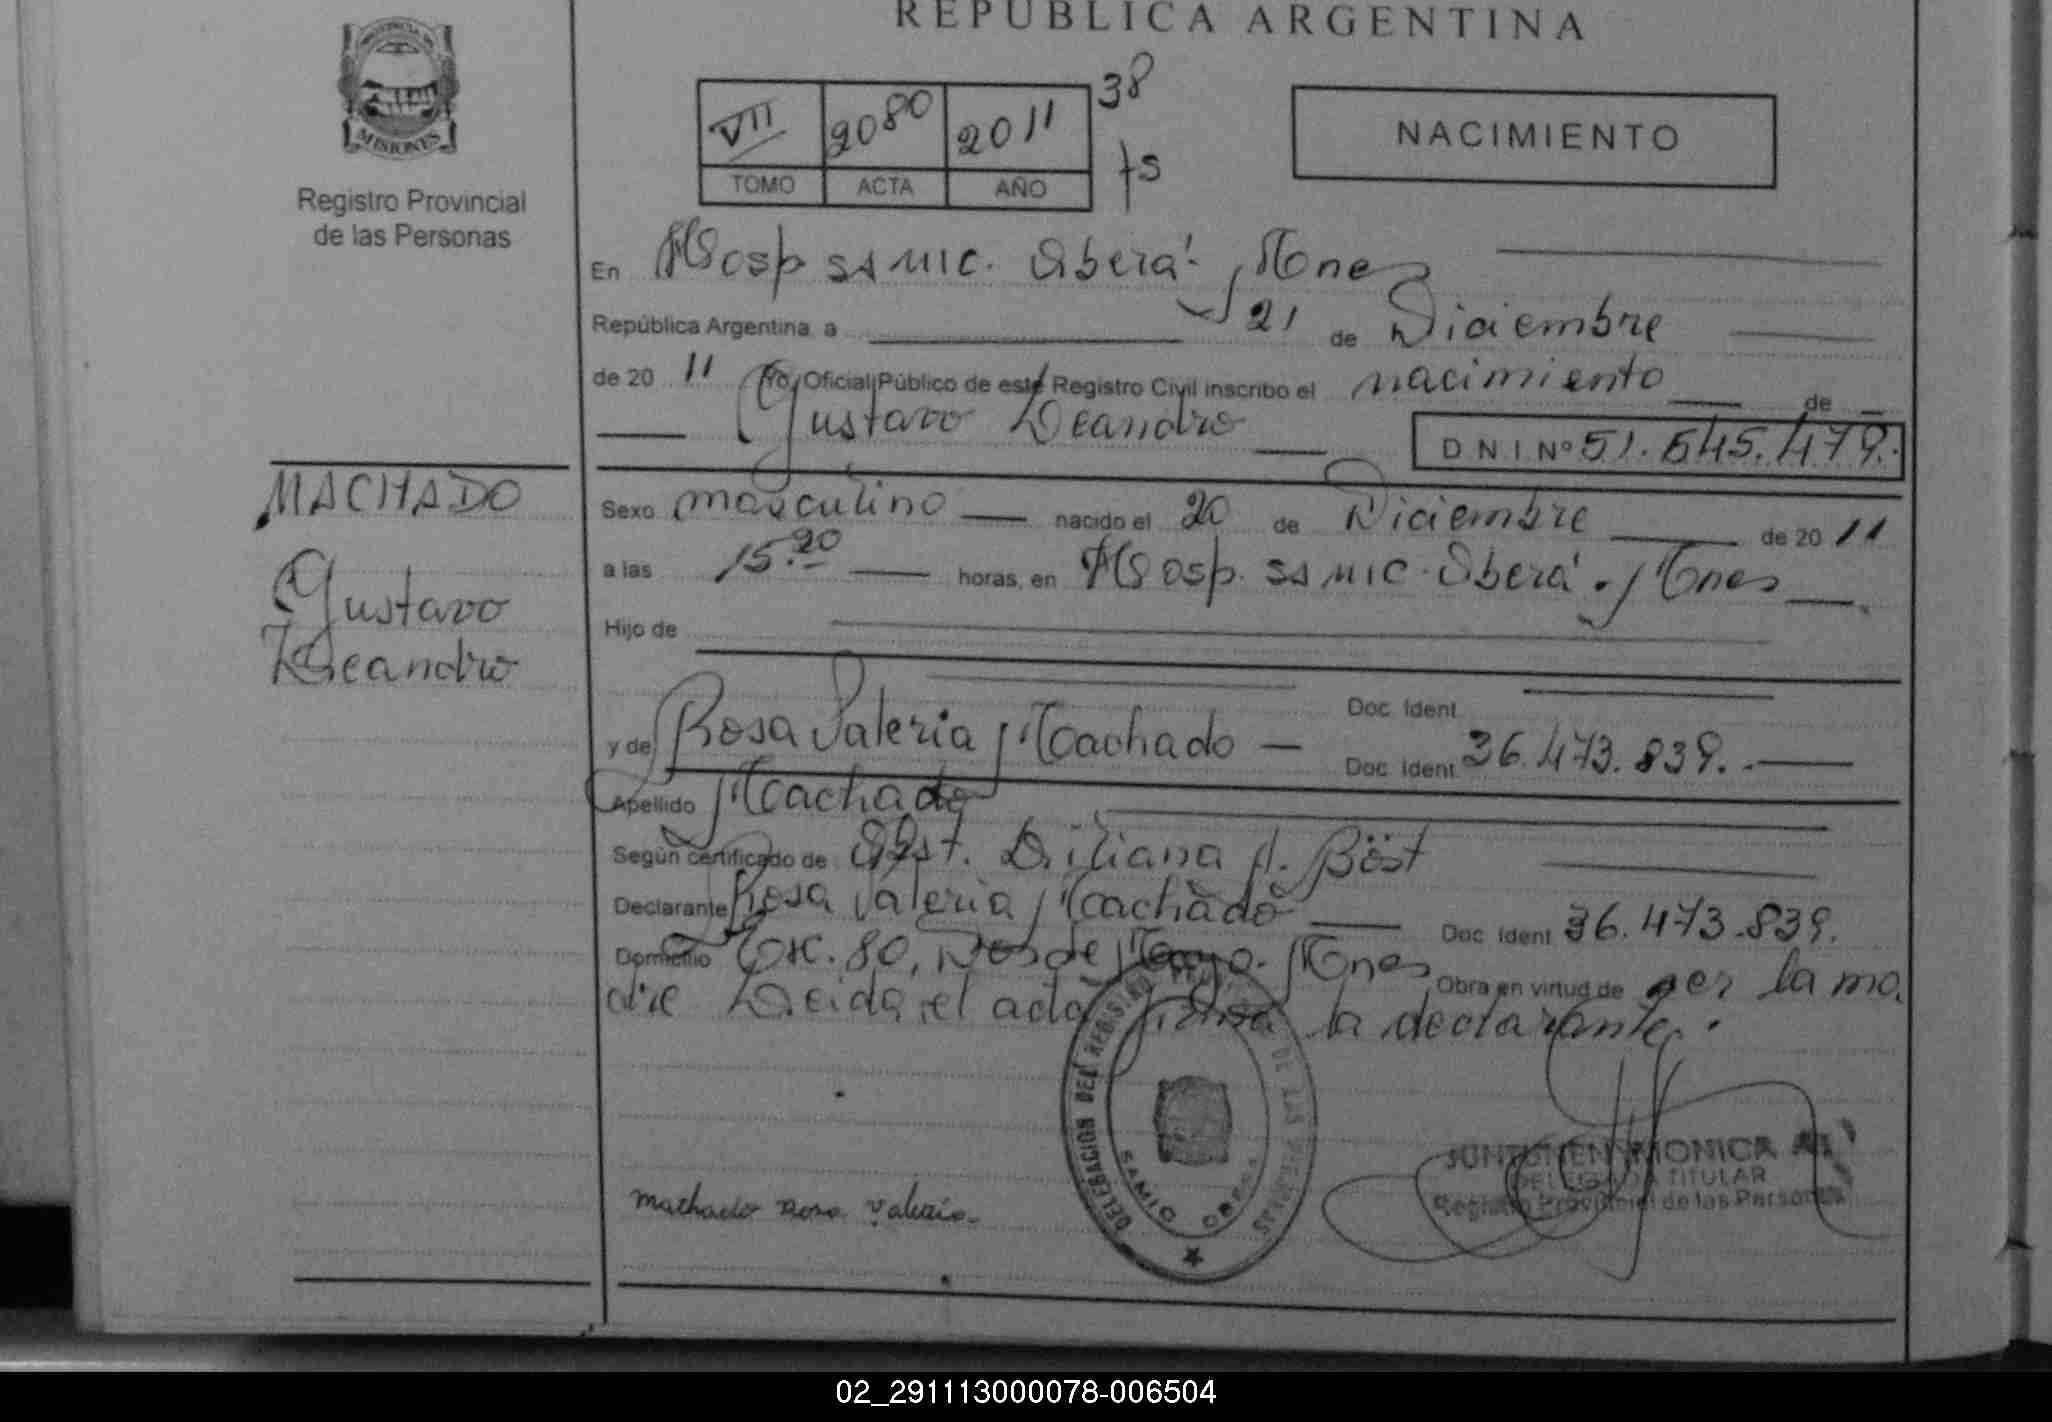 REPUBLICA ARGENTINA
MISIONES
Registro Provincial
de las Personas
VII 2080 2011
TOMO ACTA AÑO
38
fs
NACIMIENTO
En Hosp. SAMIC. Oberá. Mnes
República Argentina, a 21 de Diciembre
de 20 11 Yo, Oficial Público de este Registro Civil inscribo el nacimiento de
Gustavo Leandro D N I Nº 51.545.479.
MACHADO
Gustavo
Leandro
Sexo masculino nacido el 20 de Diciembre de 20 11
a las 15.20 horas, en Hosp. SAMIC. Oberá. Mnes
Hijo de
Doc. Ident.
y de Rosa Valeria Machado Doc. Ident. 36.473.839.
Apellido Machado
Según certificado de Obst. Liliana A. Böst
Declarante Rosa Valeria Machado Doc. Ident. 36.473.839.
Domicilio Km. 80, Dos de Mayo. Mnes Obra en virtud de ser la ma
dre Leida el acta firma la declarante.
DELEGACION DEL REGISTRO PROVINCIAL DE LAS PERSONAS
SAMIC OBERA
Machado Rosa Valeria.
JUNTUNEN MONICA
DELEGADA TITULAR
Registro Provincial de las Personas
02_291113000078-006504